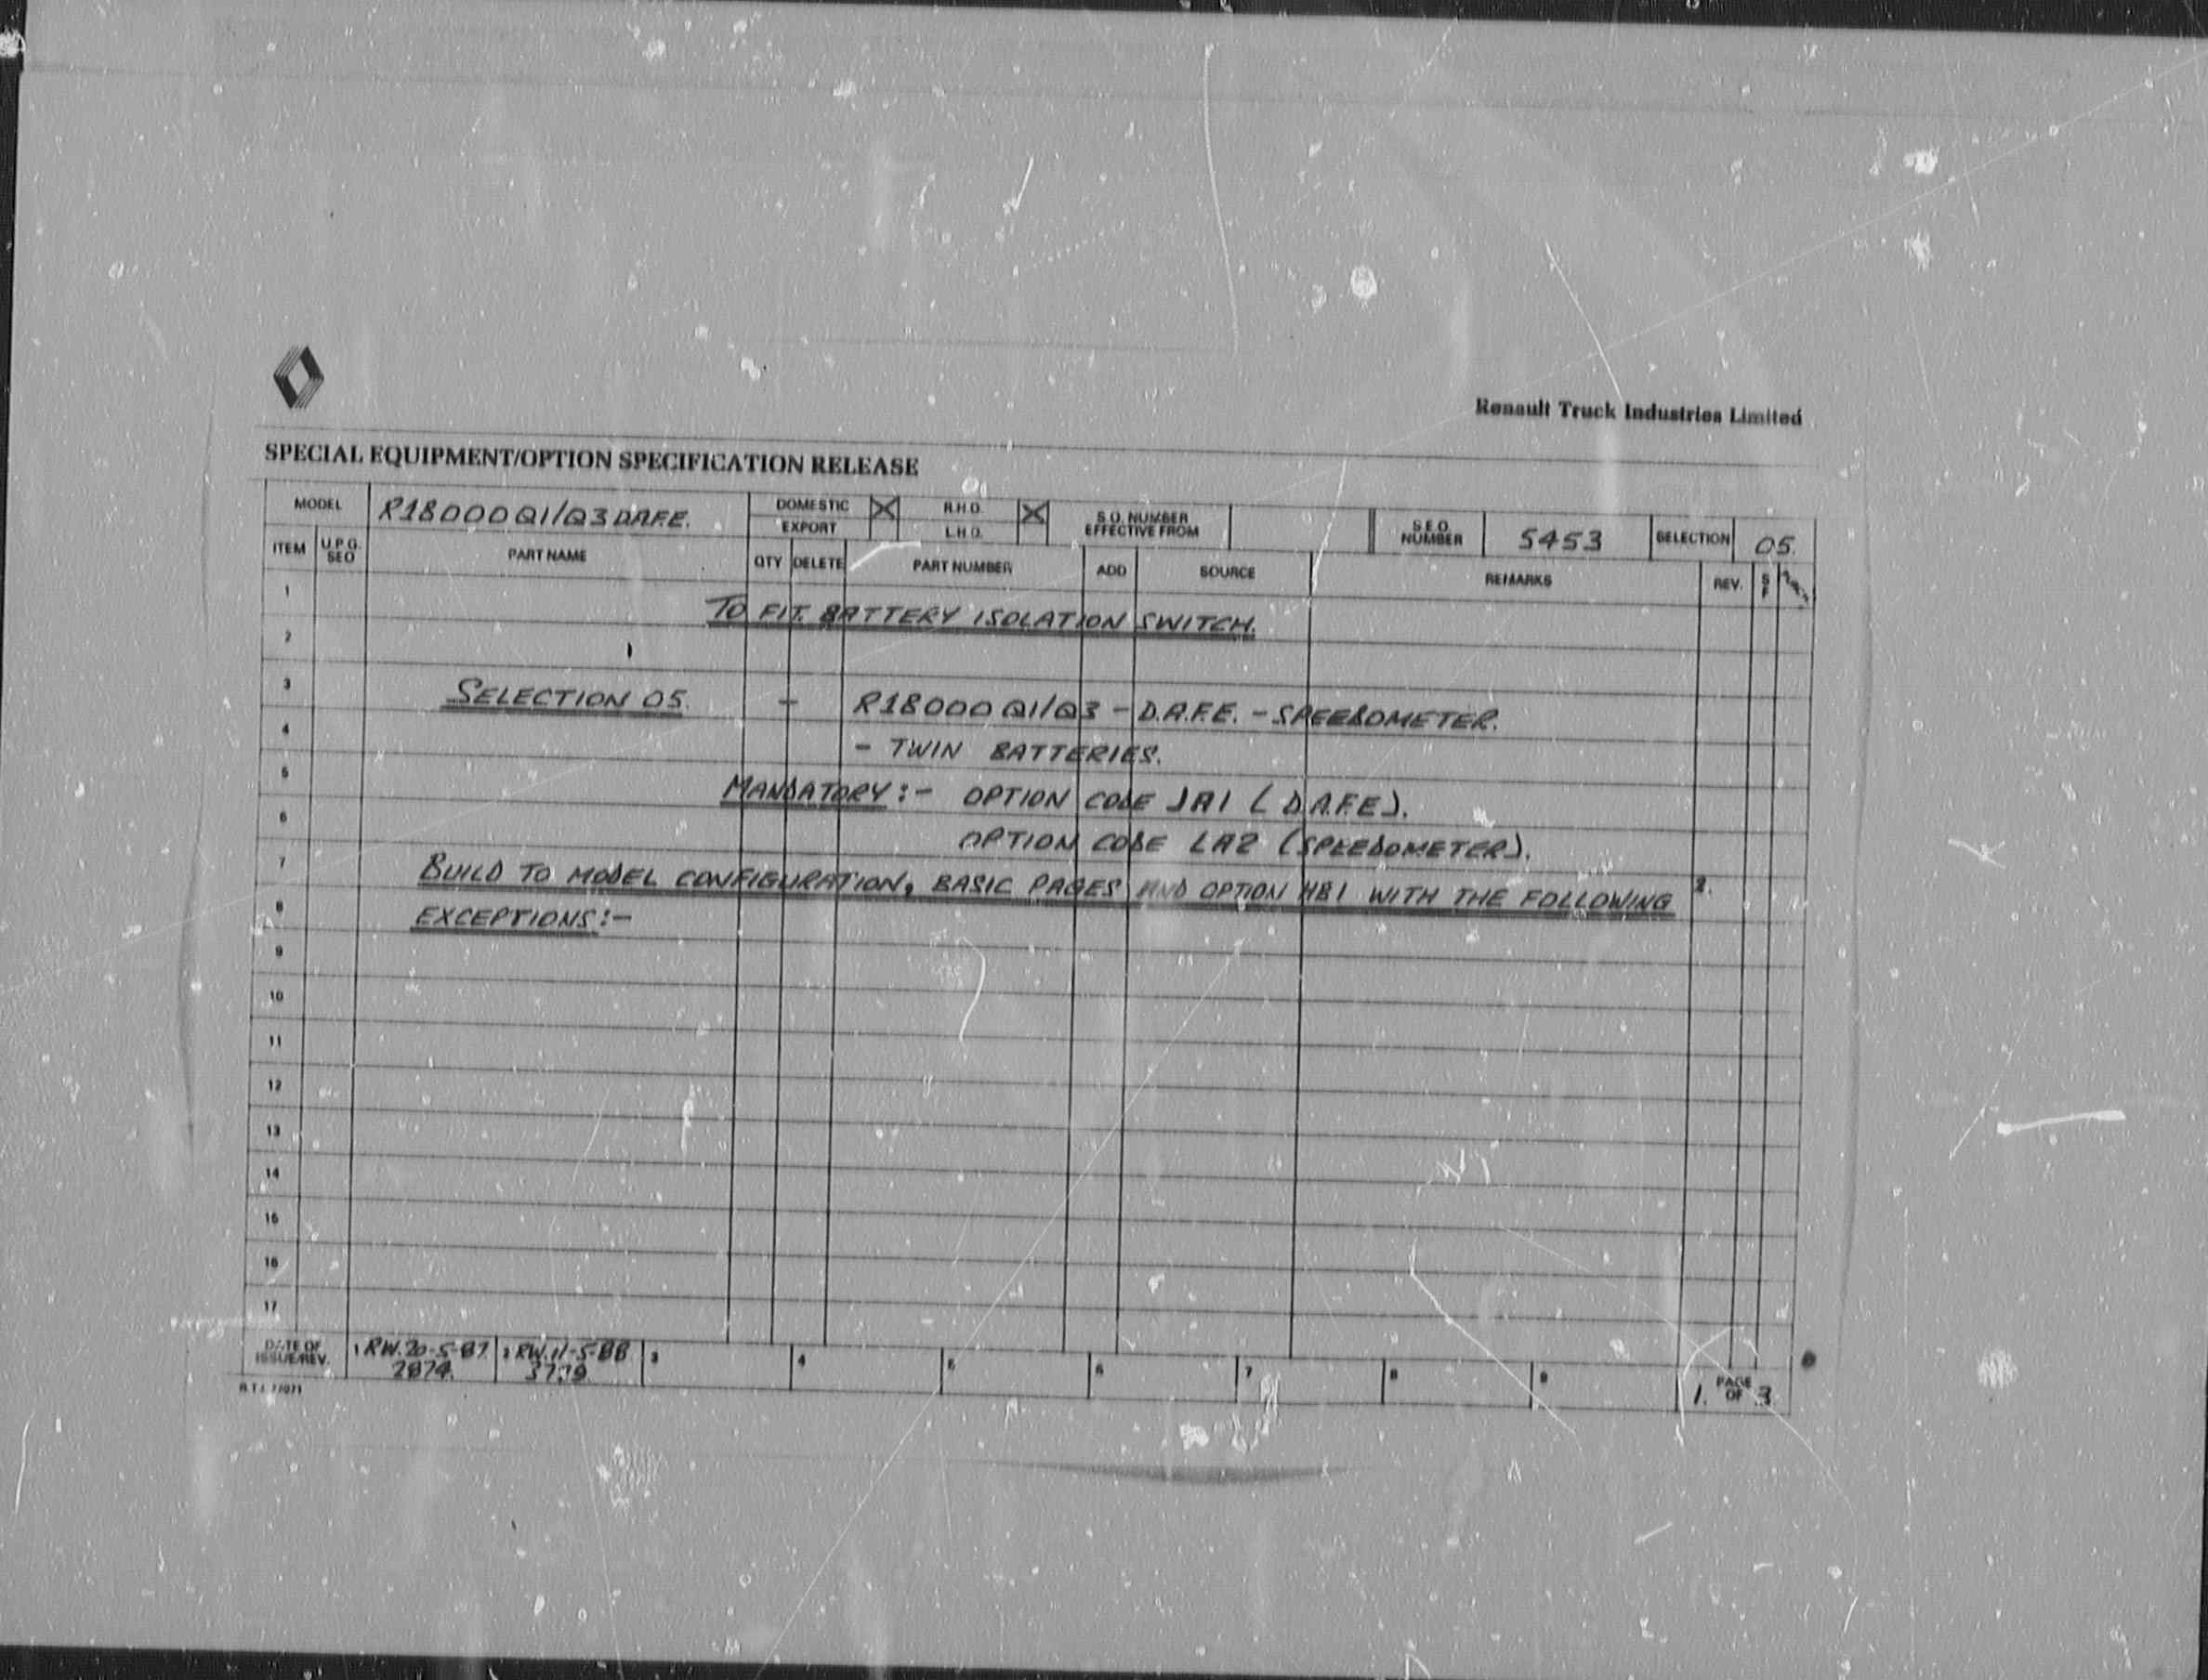 Renault Truck Industries Limited
SPECIAL EQUIPMENT/OPTION SPECIFICATION RELEASE
MODEL R18000Q1/Q3 D.A.F.E. DOMESTIC X R.H.D. X S.O. NUMBER EFFECTIVE FROM S.E.O. NUMBER 5453 SELECTION 05.
EXPORT L.H.D.
ITEM U.P.G. SEO PART NAME QTY DELETE PART NUMBER ADD SOURCE REMARKS REV. S F
1 TO FIT. BATTERY ISOLATION SWITCH.
2
3 SELECTION 05. - R18000Q1/Q3 - D.A.F.E. - SPEEDOMETER.
4 - TWIN BATTERIES.
5 MANDATORY:- OPTION CODE JA1 (D.A.F.E).
6 OPTION CODE LA2 (SPEEDOMETER).
7 BUILD TO MODEL CONFIGURATION, BASIC PAGES AND OPTION HB1 WITH THE FOLLOWING 2.
8 EXCEPTIONS:-
9
10
11
12
13
14
15
16
17
DATE OF ISSUE/REV. 1 RW. 20-5-87 2 RW. 11-5-88 3 4 5 6 7 8 9 1. PAGE OF 3
2874.